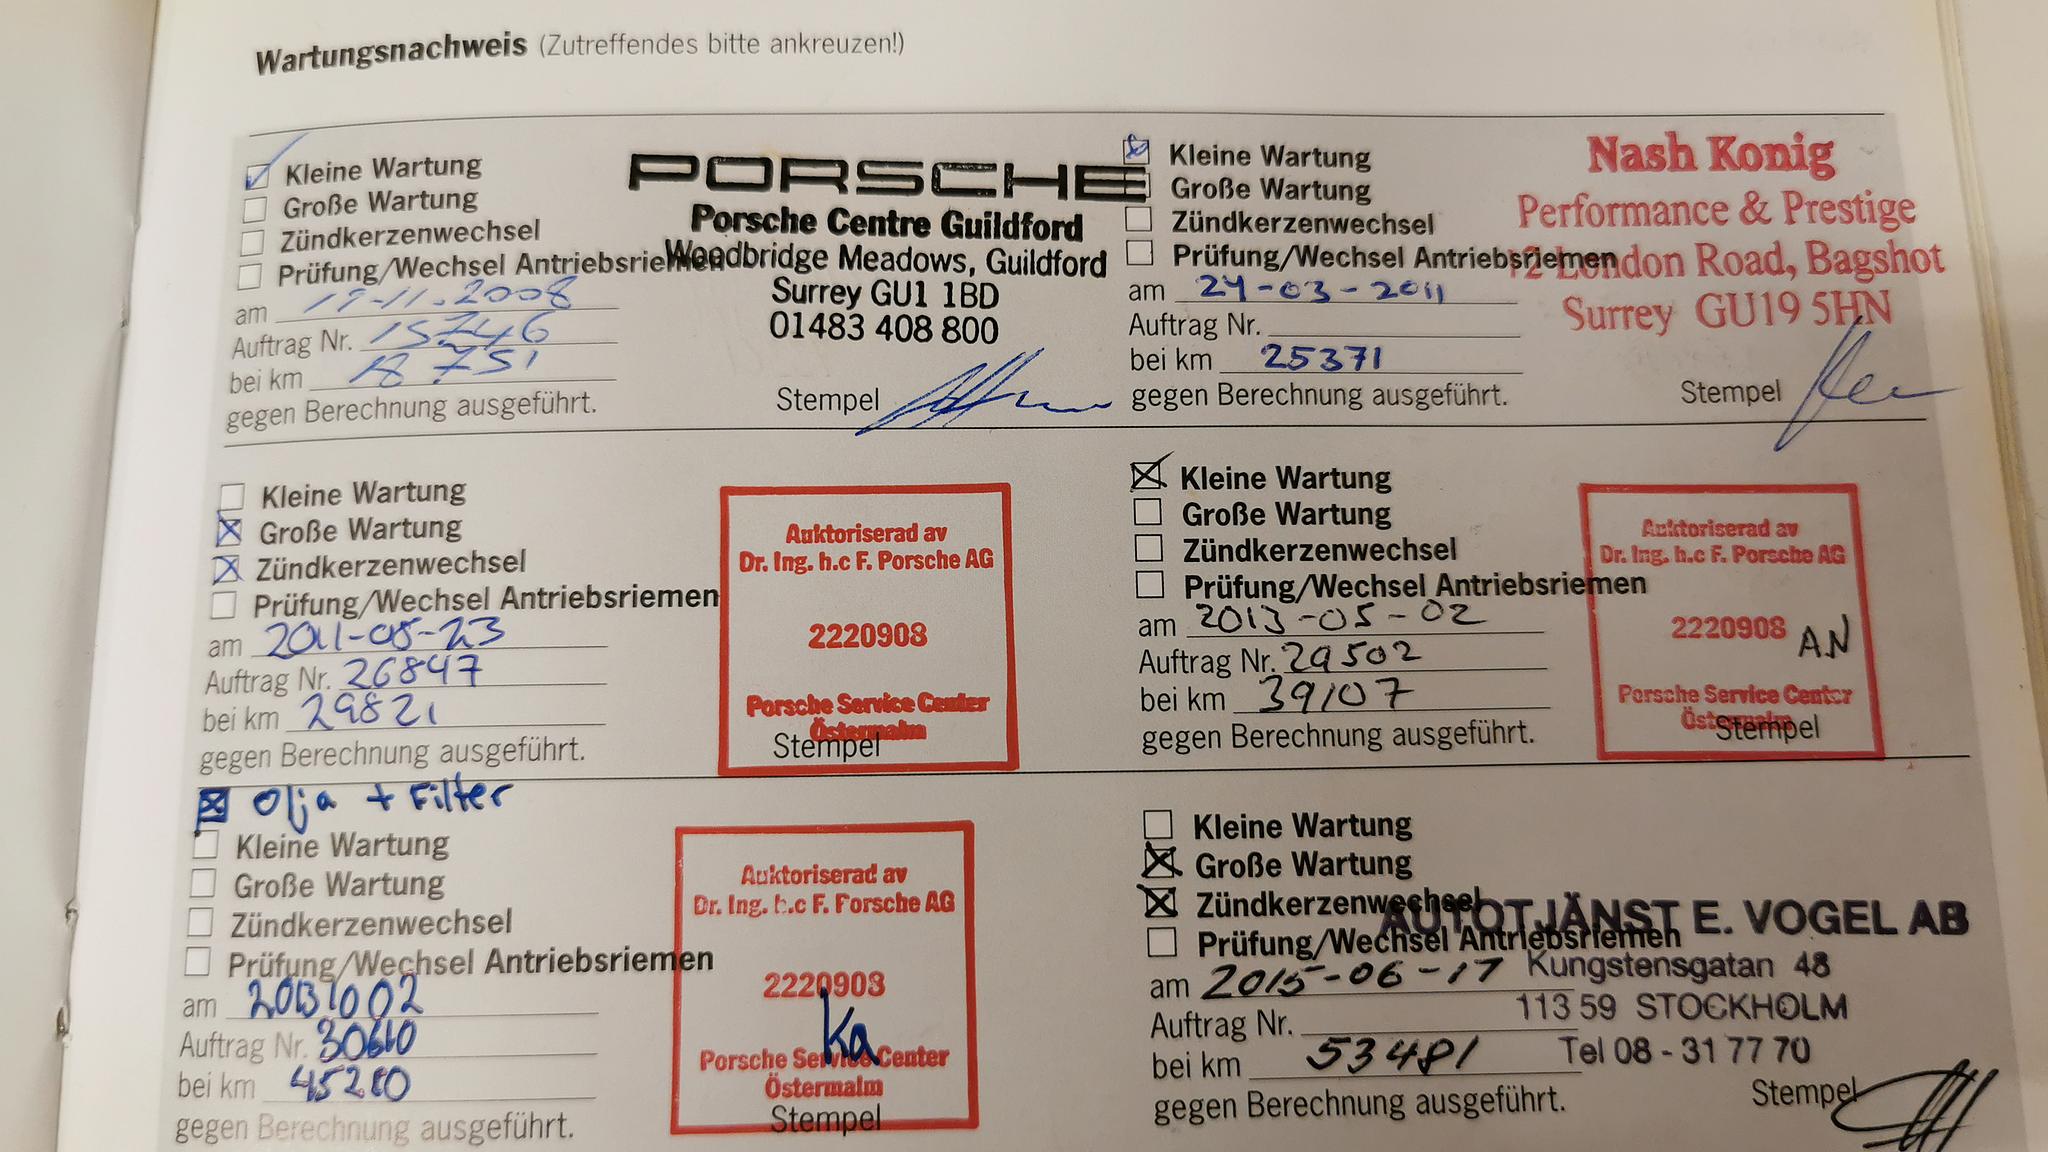 Wartungsnachweis (Zutreffendes bitte ankreuzen!)
Kleine Wartung
Große Wartung
Zündkerzenwechsel
Prüfung/Wechsel Antriebsriemen
am 19-11.2008
Auftrag Nr. 15246
bei km 18 751
gegen Berechnung ausgeführt.
PORSCHE
Porsche Centre Guildford
Woodbridge Meadows, Guildford
Surrey GU1 1BD
01483 408 800
Stempel
Kleine Wartung
Große Wartung
Zündkerzenwechsel
Prüfung/Wechsel Antriebsriemen
am 24-03-2011
Auftrag Nr.
bei km 25371
gegen Berechnung ausgeführt.
Nash Konig
Performance & Prestige
12 London Road, Bagshot
Surrey GU19 5HN
Stempel
Kleine Wartung
Große Wartung
Zündkerzenwechsel
Prüfung/Wechsel Antriebsriemen
am 2011-08-23
Auftrag Nr. 26847
bei km 29821
gegen Berechnung ausgeführt.
Auktoriserad av
Dr. Ing. h.c F. Porsche AG
2220908
Porsche Service Center
Östermalm
Stempel
Kleine Wartung
Große Wartung
Zündkerzenwechsel
Prüfung/Wechsel Antriebsriemen
am 2013-05-02
Auftrag Nr. 29502
bei km 39107
gegen Berechnung ausgeführt.
Auktoriserad av
Dr. Ing. h.c F. Porsche AG
2220908
AN
Porsche Service Center
Östermalm
Stempel
Olja + Filter
Kleine Wartung
Große Wartung
Zündkerzenwechsel
Prüfung/Wechsel Antriebsriemen
am 20131002
Auftrag Nr. 30610
bei km 45210
gegen Berechnung ausgeführt.
Auktoriserad av
Dr. Ing. h.c F. Porsche AG
2220908
Ka
Porsche Service Center
Östermalm
Stempel
Kleine Wartung
Große Wartung
Zündkerzenwechsel
Prüfung/Wechsel Antriebsriemen
am 2015-06-17
Auftrag Nr.
bei km 53481
gegen Berechnung ausgeführt.
AUTOTJÄNST E. VOGEL AB
Kungstensgatan 48
113 59 STOCKHOLM
Tel 08 - 31 77 70
Stempel